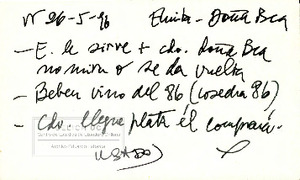 Nº 26-5-96 Emita - Doña Bea
- E. le sirve + cdo. doña Bea
no mira o se da vuelta
- Beben vino del 86 (cosecha 86)
- Cdo. llegue plata él comprará.
(USADO)